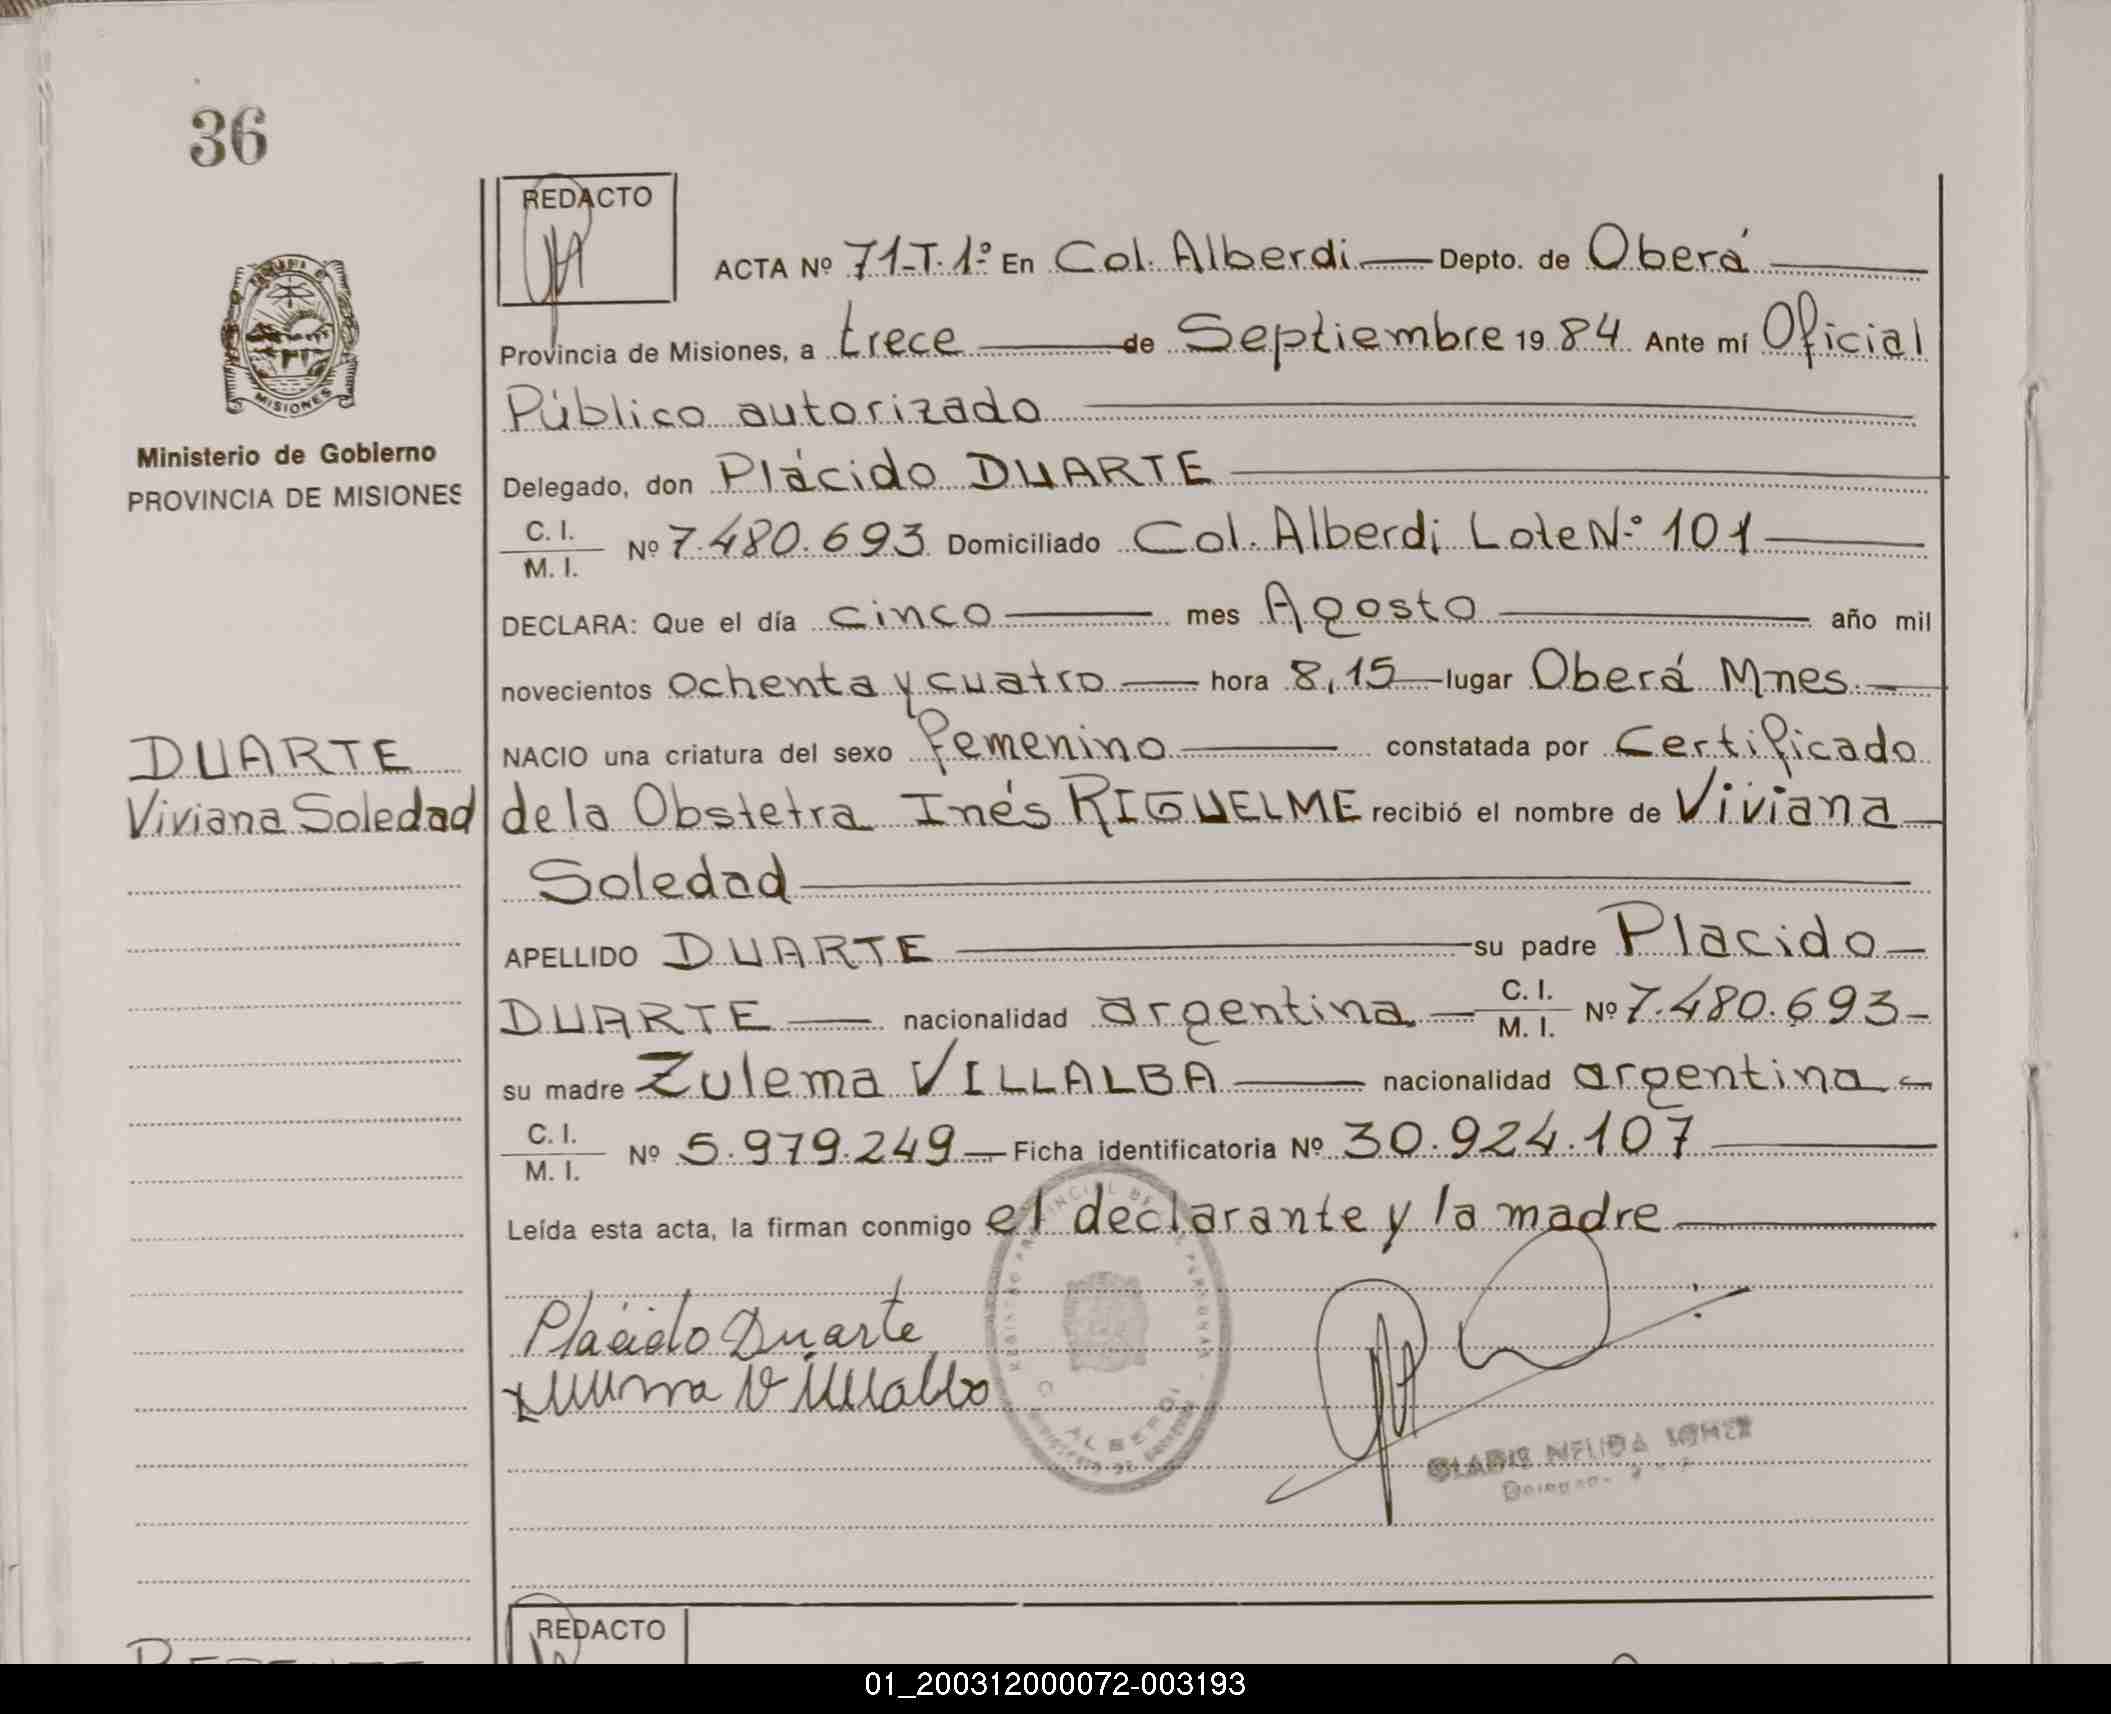 36
REDACTO
ACTA Nº 71-T.1º En Col. Alberdi Depto. de Oberá
Provincia de Misiones, a trece de Septiembre 19 84 Ante mí Oficial
Público autorizado
Ministerio de Gobierno
PROVINCIA DE MISIONES
Delegado, don Plácido DUARTE
C. I.
M. I.
Nº 7.480.693 Domiciliado Col. Alberdi Lote Nº 101
DECLARA: Que el día cinco mes Agosto año mil
novecientos ochenta y cuatro hora 8,15 lugar Oberá Mnes.
NACIO una criatura del sexo femenino constatada por Certificado
DUARTE
Viviana Soledad
de la Obstetra Inés RIGUELME recibió el nombre de Viviana
Soledad
APELLIDO DUARTE su padre Placido
DUARTE nacionalidad argentina C. I. M. I. Nº 7.480.693
su madre Zulema VILLALBA nacionalidad argentina
C. I.
M. I.
Nº 5.979.249 Ficha identificatoria Nº 30.924.107
Leída esta acta, la firman conmigo el declarante y la madre
Plácido Duarte
MISIONES
ALBERDI
GLADIS NELIDA
REDACTO
01_200312000072-003193